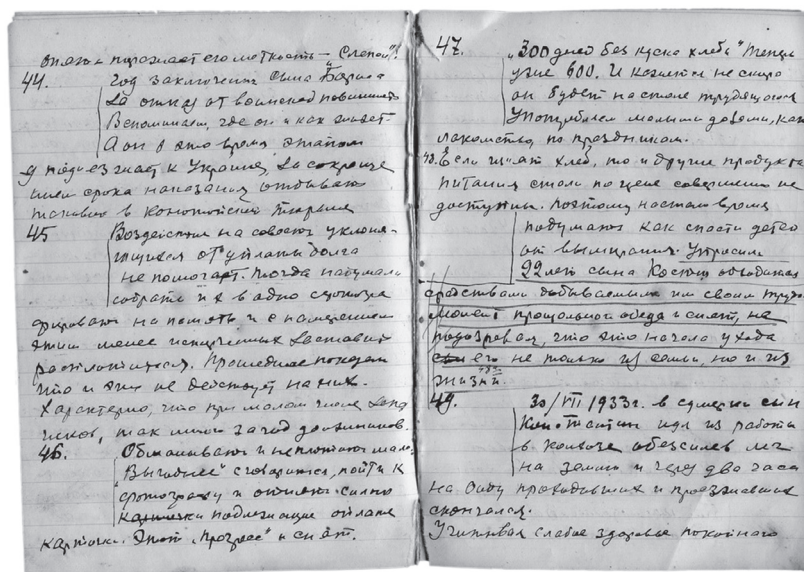 опять поражает его меткость – Слепой"!
44. Год заключения сына Бориса
За отказ от военной повинности
Вспоминаем, где он и как живет
А он в это время этапом
подъезжает к Украине, За сокраще
нием срока наказания отбываю
в Конотопской тюрьме
45 Воздействия на совесть уклоня-
ющихся от уплаты долга
не помогает. Тогда надумали
собрать их в одно сфотогра
фировать на память и с намерением
этим менее испорченных заставить
расплатиться. Прошедшее показало
что и это не действует на них.
Характерно, что при малом числе
так много за год должников.
46. Обманывают и не платят мало,
"Выгоднее" сговориться, пойти к
фотографу и снять
карточки подлежащие оплате
карточки. Этот "прогресс" и снят.
47. "300 дней без куска хлеба" Теперь
уже 600. И кажется не скоро
он будет на столе трудящегося
Употребляем малыми дозами, как
лакомство, по праздникам.
48. Если изъят хлеб, то и другие продукты
питания стали по цене совершенно не
доступны. Поэтому настало время
подумать как спасти детей
от вымирания. Упросили
22 лет сына Костю
средствами добываемым им своим трудо
прощального обеда и снят, не
подозревая, что это начало ухода
его не только из семьи, но и из
жизни.
49. 30/VII 1933 г. в сумерки сын
Константин идя из работы
в колхозе обезсилев лег
на землю и через два часа
на виду проходивших и проезжавших
скончался.
Учитывая слабое здоровье покойного